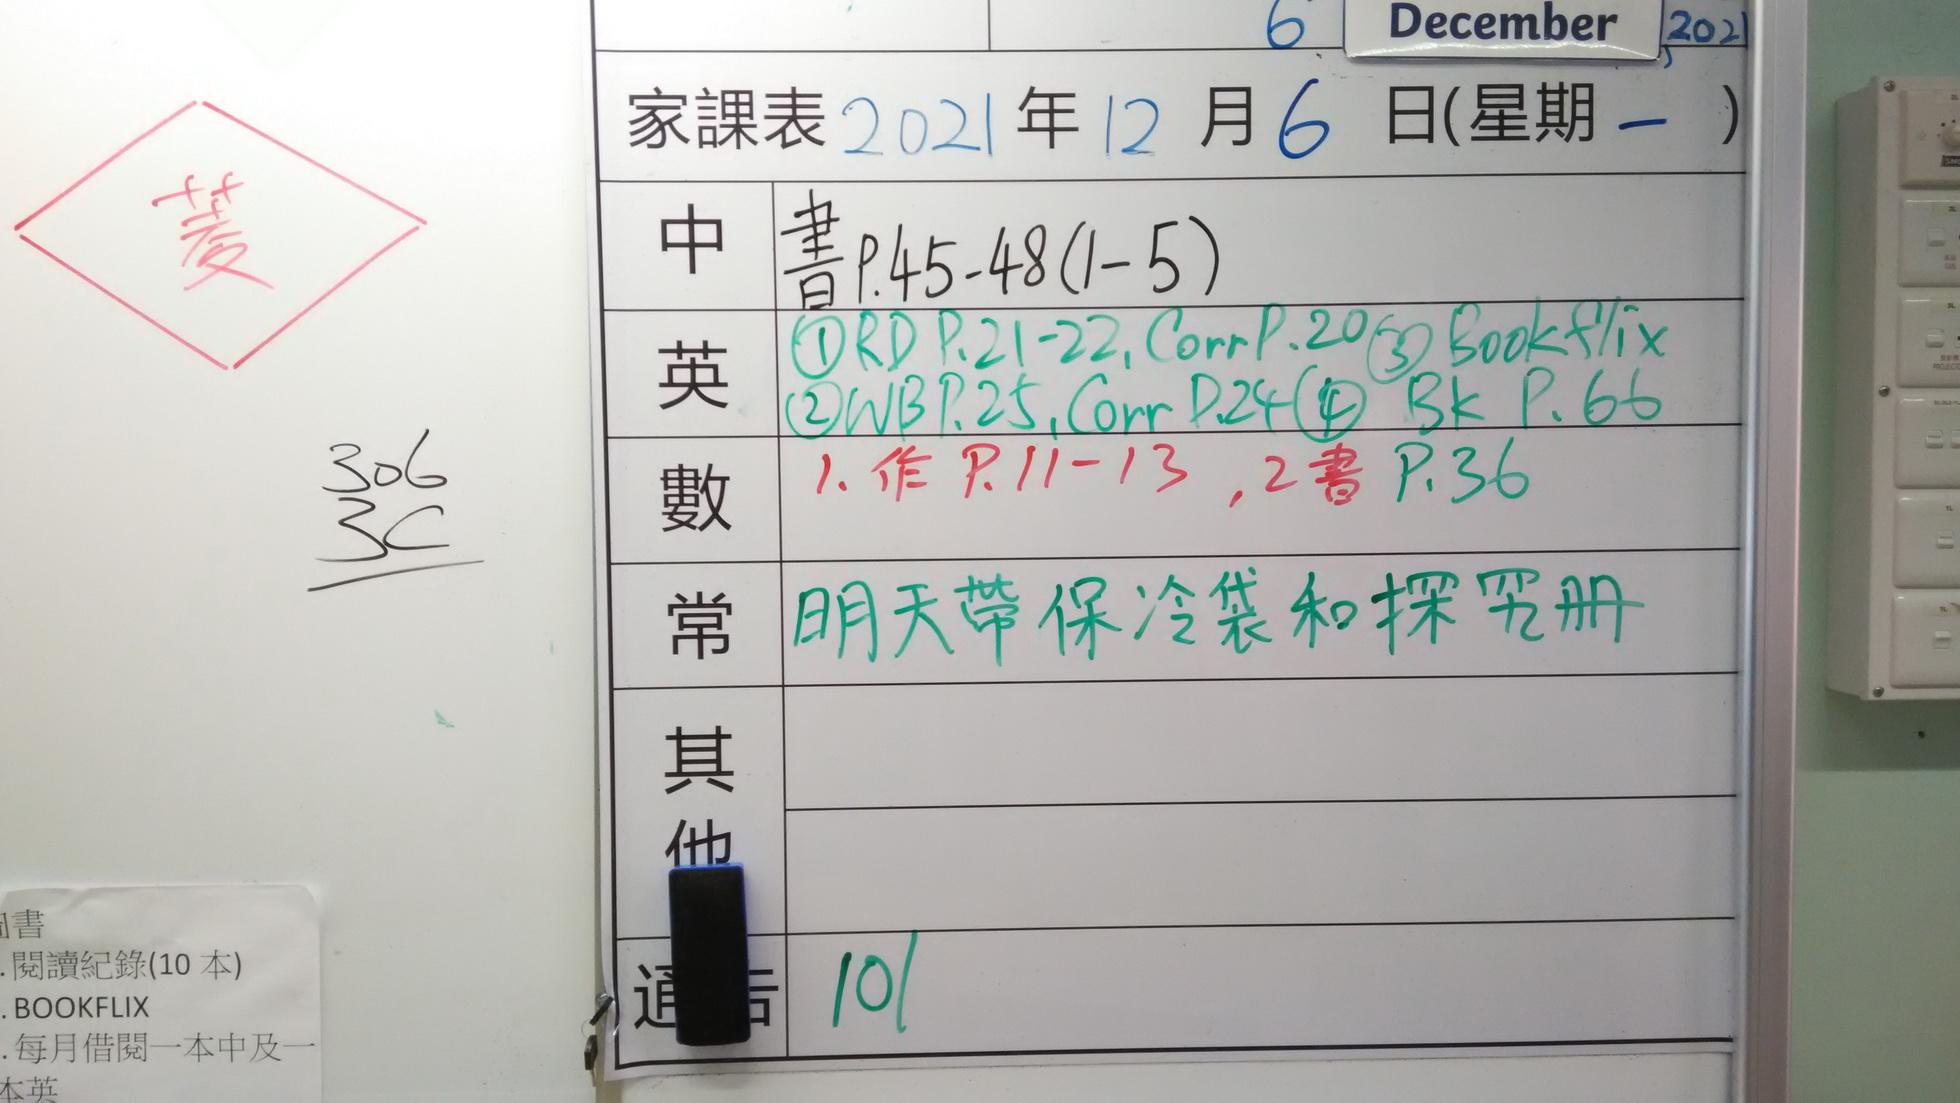 6 December 2021
家課表 2021 年 12 月 6 日(星期 一 )
中 書P.45-48(1-5)
英 ①RD P.21-22, Corr P.20 ③ Bookflix
②WB P.25, Corr P.24 ④ Bk P.66
數 1. 作 P.11-13 , 2 書 P.36
常 明天帶保冷袋和探究册
其他
通告 101
菱
306
3C
圖書
.閱讀紀錄(10 本)
.BOOKFLIX
.每月借閱一本中及一
本英